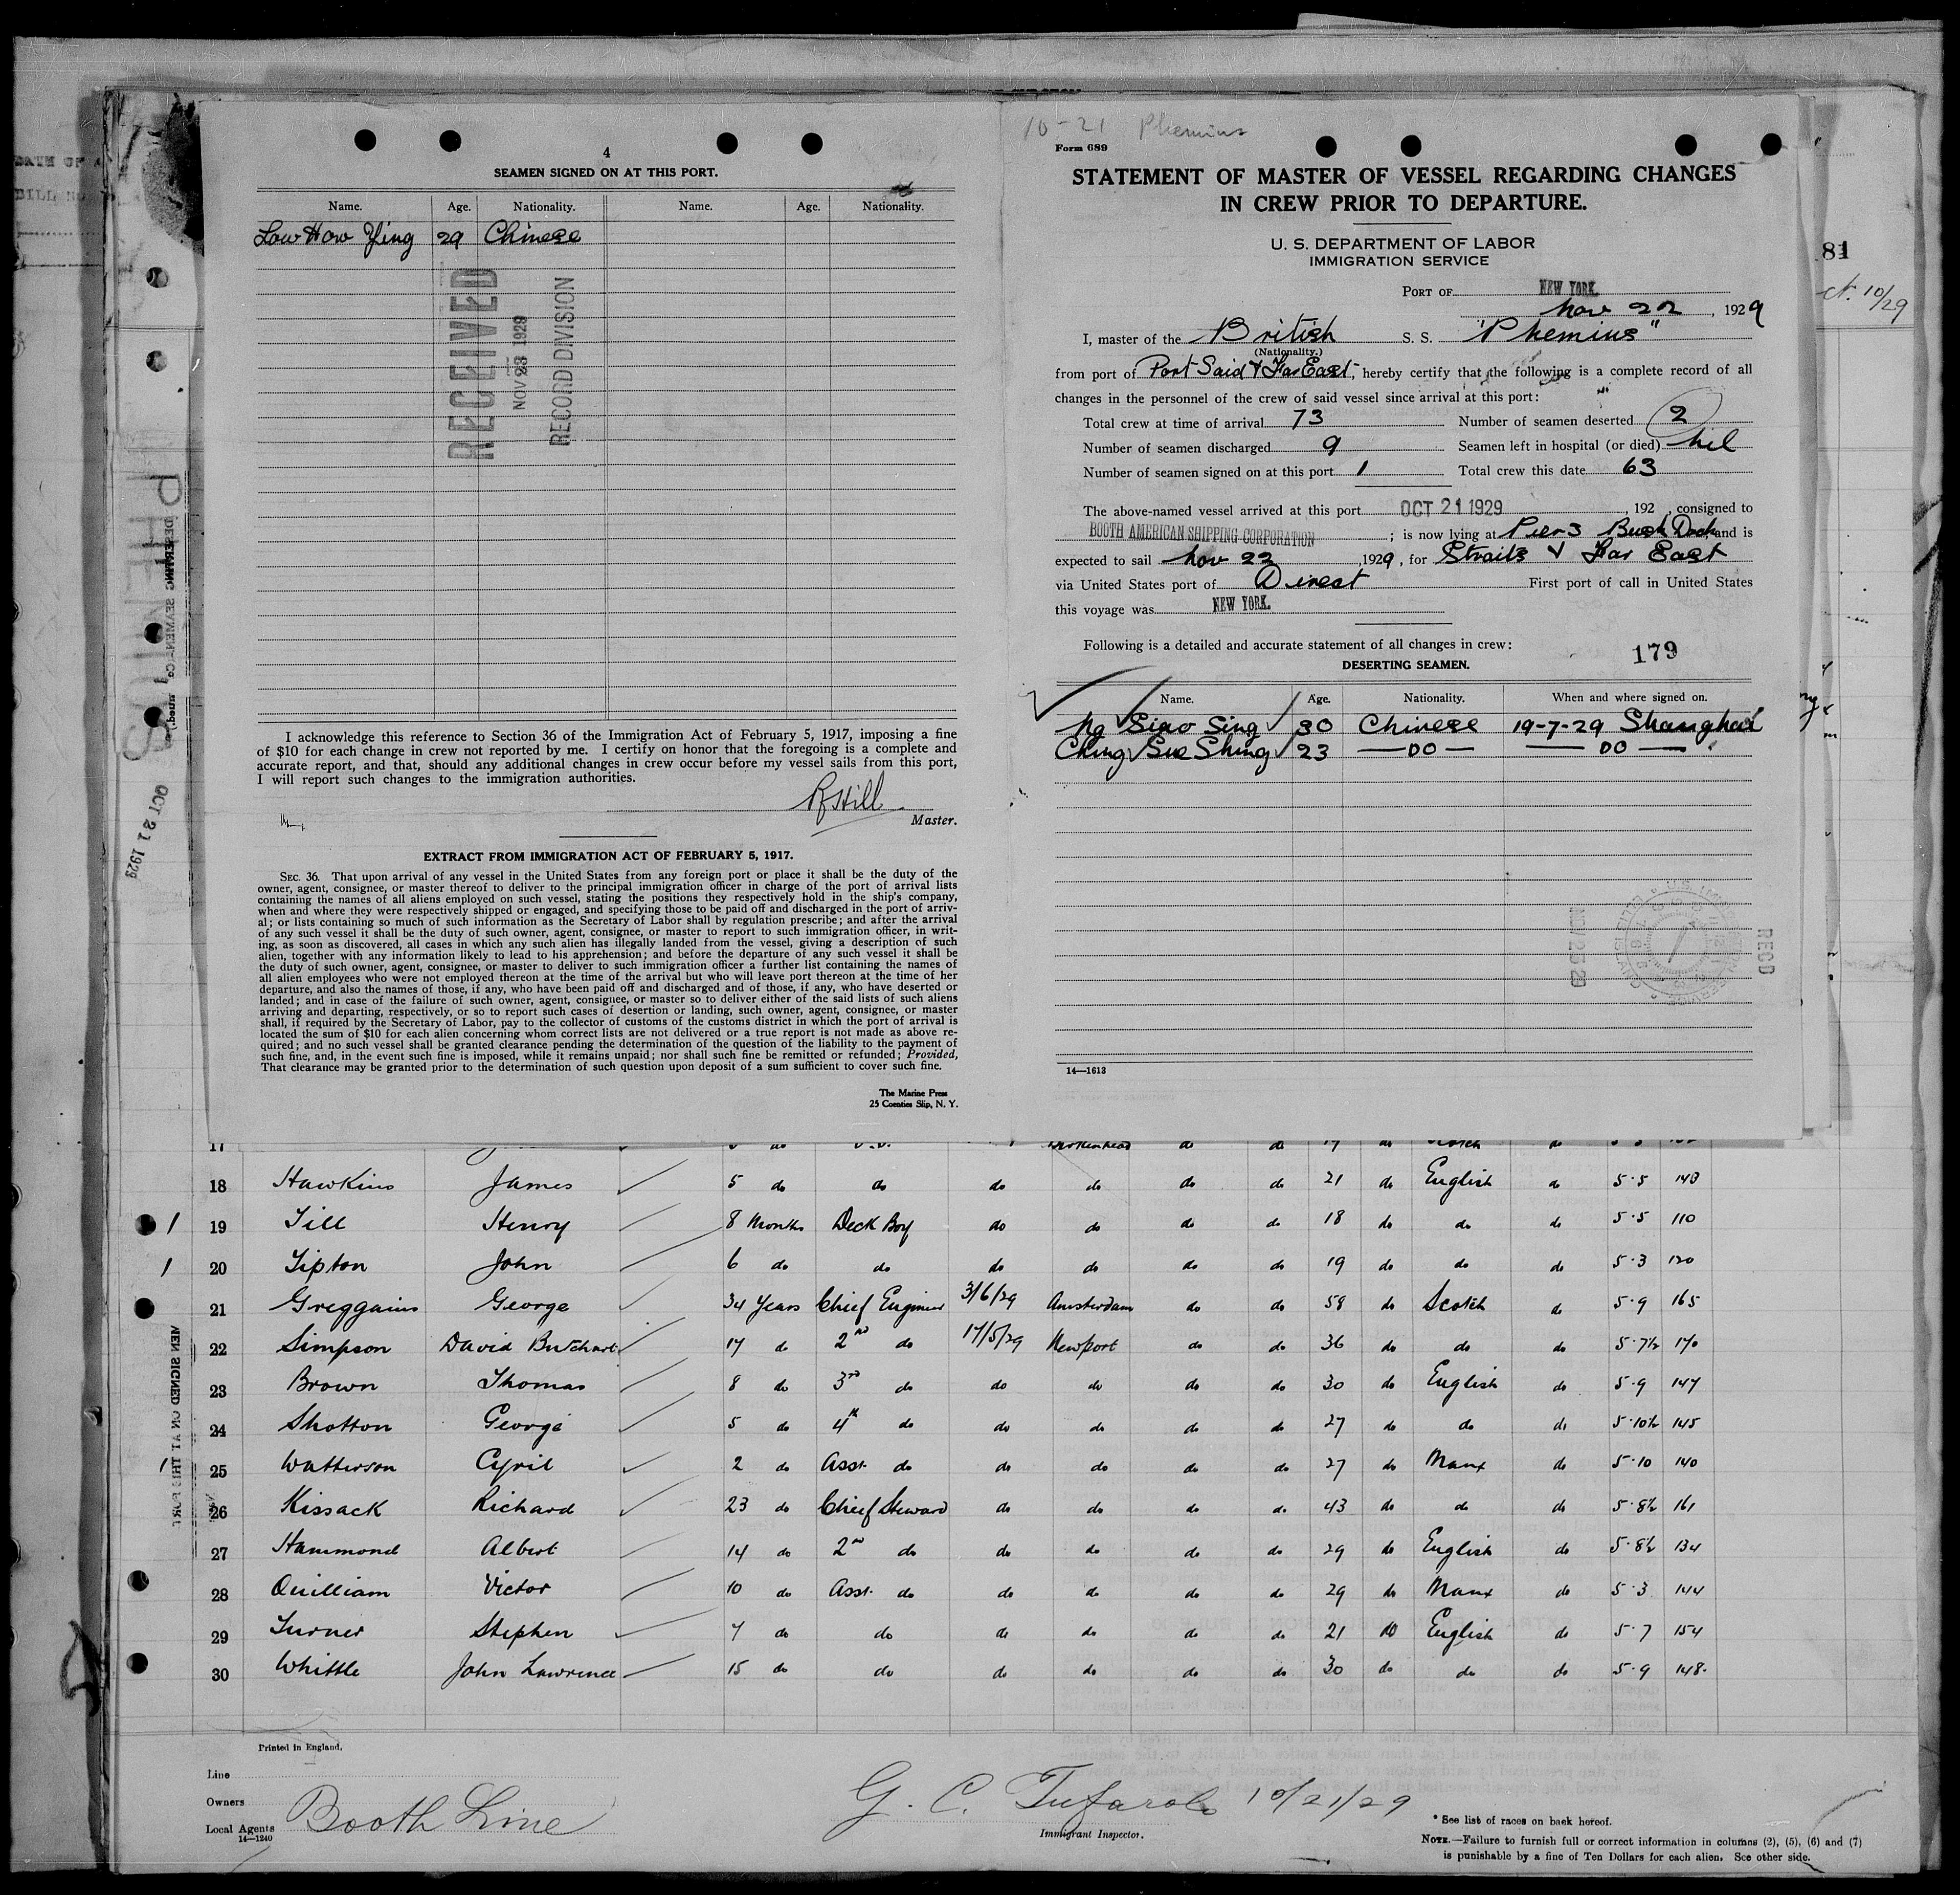 4
SEAMEN SIGNED ON AT THIS PORT.
Name. Age. Nationality. Name. Age. Nationality.
Low How Ying 29 Chinese
RECEIVED
NOV 23 1929
RECORD DIVISION
I acknowledge this reference to Section 36 of the Immigration Act of February 5, 1917, imposing a fine
of $10 for each change in crew not reported by me. I certify on honor that the foregoing is a complete and
accurate report, and that, should any additional changes in crew occur before my vessel sails from this port,
I will report such changes to the immigration authorities.
RHill
Master.
EXTRACT FROM IMMIGRATION ACT OF FEBRUARY 5, 1917.
SEC. 36. That upon arrival of any vessel in the United States from any foreign port or place it shall be the duty of the
owner, agent, consignee, or master thereof to deliver to the principal immigration officer in charge of the port of arrival lists
containing the names of all aliens employed on such vessel, stating the positions they respectively hold in the ship's company,
when and where they were respectively shipped or engaged, and specifying those to be paid off and discharged in the port of arriv-
al; or lists containing so much of such information as the Secretary of Labor shall by regulation prescribe; and after the arrival
of any such vessel it shall be the duty of such owner, agent, consignee, or master to report to such immigration officer, in writ-
ing, as soon as discovered, all cases in which any such alien has illegally landed from the vessel, giving a description of such
alien, together with any information likely to lead to his apprehension; and before the departure of any such vessel it shall be
the duty of such owner, agent, consignee, or master to deliver to such immigration officer a further list containing the names of
all alien employees who were not employed thereon at the time of the arrival but who will leave port thereon at the time of her
departure, and also the names of those, if any, who have been paid off and discharged and of those, if any, who have deserted or
landed; and in case of the failure of such owner, agent, consignee, or master so to deliver either of the said lists of such aliens
arriving and departing, respectively, or so to report such cases of desertion or landing, such owner, agent, consignee, or master
shall, if required by the Secretary of Labor, pay to the collector of customs of the customs district in which the port of arrival is
located the sum of $10 for each alien concerning whom correct lists are not delivered or a true report is not made as above re-
quired; and no such vessel shall be granted clearance pending the determination of the question of the liability to the payment of
such fine, and, in the event such fine is imposed, while it remains unpaid; nor shall such fine be remitted or refunded; Provided,
That clearance may be granted prior to the determination of such question upon deposit of a sum sufficient to cover such fine.
The Marine Press
25 Coenties Slip, N. Y.
10-21 Phemius
Form 689
STATEMENT OF MASTER OF VESSEL REGARDING CHANGES
IN CREW PRIOR TO DEPARTURE.
U. S. DEPARTMENT OF LABOR
IMMIGRATION SERVICE
PORT OF NEW YORK.
Nov 22, 1929
I, master of the British S. S. "Phemius"
(Nationality.)
from port of Port Said & Far East, hereby certify that the following is a complete record of all
changes in the personnel of the crew of said vessel since arrival at this port:
Total crew at time of arrival 73 Number of seamen deserted 2
Number of seamen discharged 9 Seamen left in hospital (or died) nil
Number of seamen signed on at this port 1 Total crew this date 63
The above-named vessel arrived at this port OCT 21 1929, 192 , consigned to
BOOTH AMERICAN SHIPPING CORPORATION; is now lying at Pier 3 Bush Dock and is
expected to sail Nov 22, 1929, for Straits & Far East
via United States port of Direct First port of call in United States
this voyage was NEW YORK.
Following is a detailed and accurate statement of all changes in crew:
179
DESERTING SEAMEN.
Name. Age. Nationality. When and where signed on.
Ng Siao Sing 30 Chinese 19-7-29 Shanghai
Ching Sue Shing 23 — DO — — DO —
RECD
14—1613
81
10/29
PHEMIUS
OCT 21 1929
17
18 Hawkins James 5 do do do do do do 21 do English do 5·5 143
19 Till Henry 8 Months Deck Boy do do do do 18 do do do 5·5 110
20 Tipton John 6 do do do do do do 19 do do do 5·3 120
21 Greggains George 34 Years Chief Engineer 3/6/29 Amsterdam do do 58 do Scotch do 5·9 165
22 Simpson David Butchart 17 do 2nd do 17/5/29 Newport do do 36 do do do 5·7½ 170
23 Brown Thomas 8 do 3rd do do do do do 30 do English do 5·9 147
24 Shotton George 5 do 4th do do do do do 27 do do do 5·10½ 145
25 Watterson Cyril 2 do Asst. do do do do do 27 do Manx do 5·10 140
26 Kissack Richard 23 do Chief Steward do do do do 43 do do do 5·8½ 161
27 Hammond Albert 14 do 2nd do do do do do 29 do English do 5·8½ 134
28 Quilliam Victor 10 do Asst. do do do do do 29 do Manx do 5·3 144
29 Turner Stephen 7 do do do do do do 21 do English do 5·7 154
30 Whittle John Lawrence 15 do do do do do do 30 do do do 5·9 148
Printed in England.
Line
Owners
Local Agents Booth Line
14—1240
G. C. Tufarolo 10/21/29
Immigrant Inspector.
* See list of races on back hereof.
NOTE.—Failure to furnish full or correct information in columns (2), (5), (6) and (7)
is punishable by a fine of Ten Dollars for each alien. See other side.